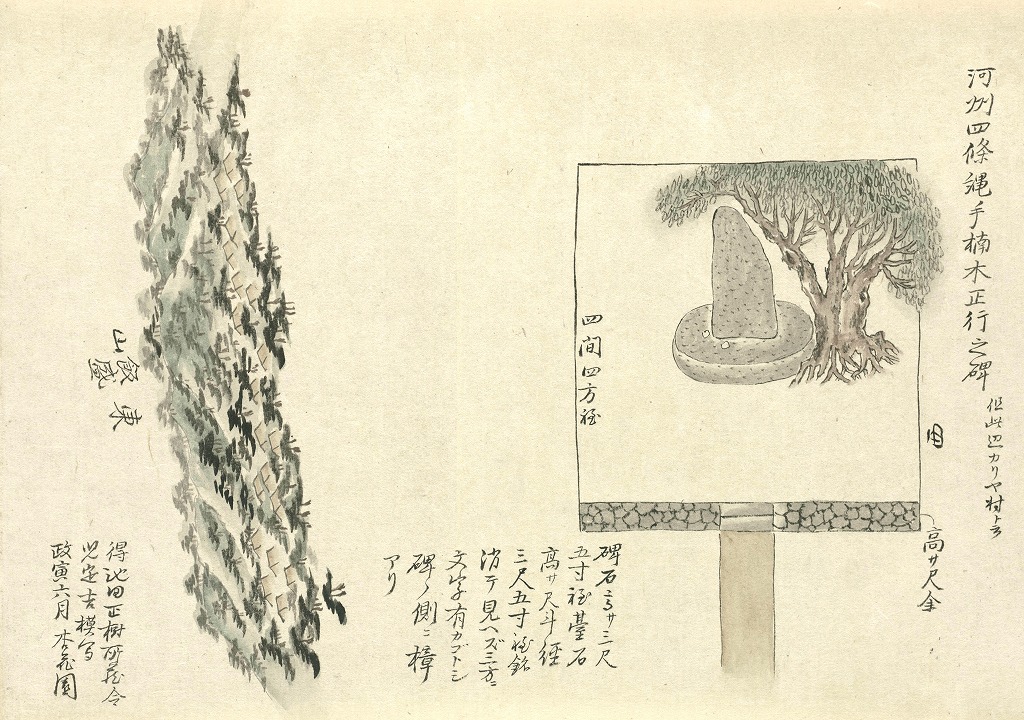 河州四條縄手楠木正行之碑
但此辺カリヤ村ト云
田
高サ尺余
四間四方程
碑石高サ三尺
五寸程臺石
高サ尺斗径
三尺五寸程銘
消テ見ヘズ三方ニ
文字有カゴトシ
碑ノ側ニ樟
アリ
東
飯盛
山
得池田正樹所蔵令
児定吉模写
政寅六月 杏花園